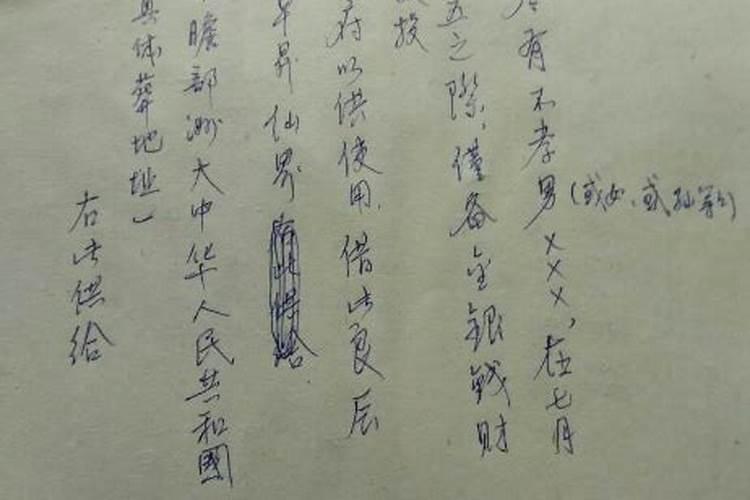 有不孝男×××，在七月
（或女、或孙等）
五之际，仅备金银钱财
投
府以供使用，借此良辰
早昇仙界
瞻部洲大中华人民共和國
具体葬地址）
右此供给